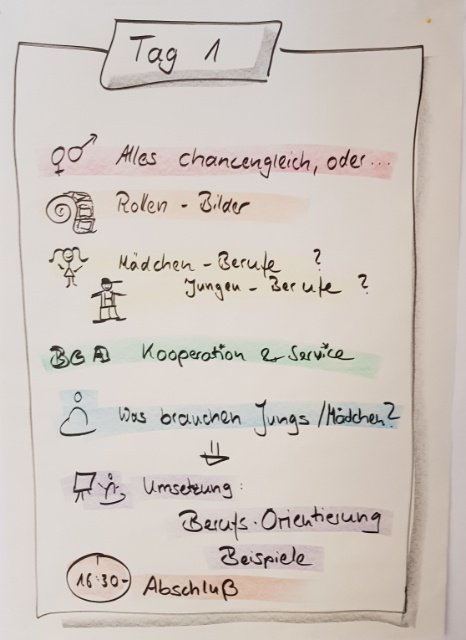 Tag 1
Alles chancengleich, oder...
Rollen - Bilder
Mädchen - Berufe ?
Jungen - Berufe ?
BCA Kooperation & Service
Was brauchen Jungs / Mädchen?
Umsetzung:
Berufs-Orientierung
Beispiele
16:30- Abschluß